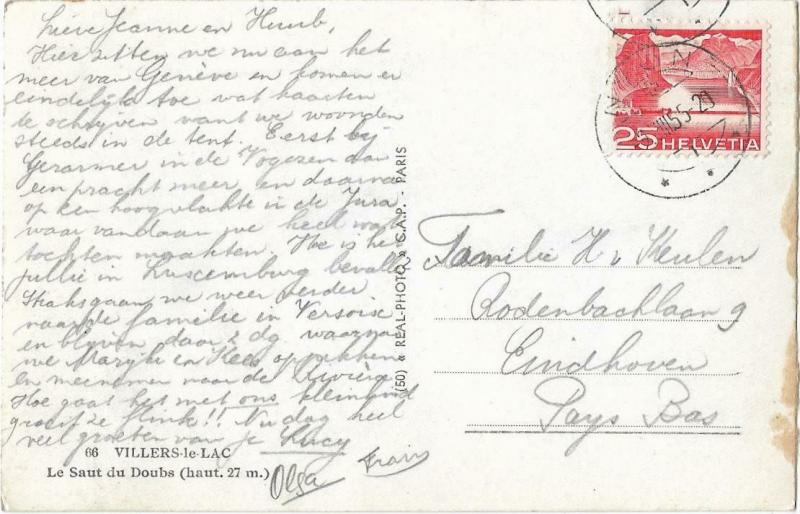 Lieve Jeanne en Huub,
Hier zitten we nu aan het
meer van Genève en komen er
eindelijk toe wat kaarten
te schrijven want we woonden
steeds in de tent. Eerst bij
Gerarmer in de Vogezen aan
een prachtmeer, en daarna
op een hoogvlakte in de Jura
waar vandaan we heel wat
tochten maakten. Hoe is het
jullie in Luxemburg bevallen
Straks gaan we weer verder
naar de familie in Versoix
en blijven daar 2 dg waarna
we Marijke en Kees oppikken
en meenemen naar de Rivièra
Hoe gaat het met ons kleinkind
groeit ze flink!! Nu dag heel
veel groeten van je Lucy
Olga Frans
66 VILLERS-le-LAC
Le Saut du Doubs (haut. 27 m.)
(50) « REAL-PHOTO » C.A.P. - PARIS
25 HELVETIA
NYON
VIII.55-20
Familie H v Keulen
Rodenbachlaan 9
Eindhoven
Pays Bas